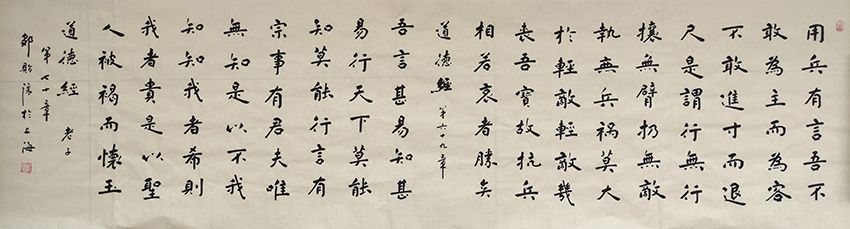 用兵有言吾不
敢為主而為客
不敢進寸而退
尺是謂行無行
攘無臂扔無敵
執無兵祸莫大
於輕敵輕敵幾
喪吾寳故抗兵
相若哀者勝矣
道德經 第六十九章
吾言甚易知甚
易行天下莫能
知莫能行言有
宗事有君夫唯
無知是以不我
知知我者希則
我者貴是以聖
人被褐而懷玉
道德經 老子
第七十章
於上海